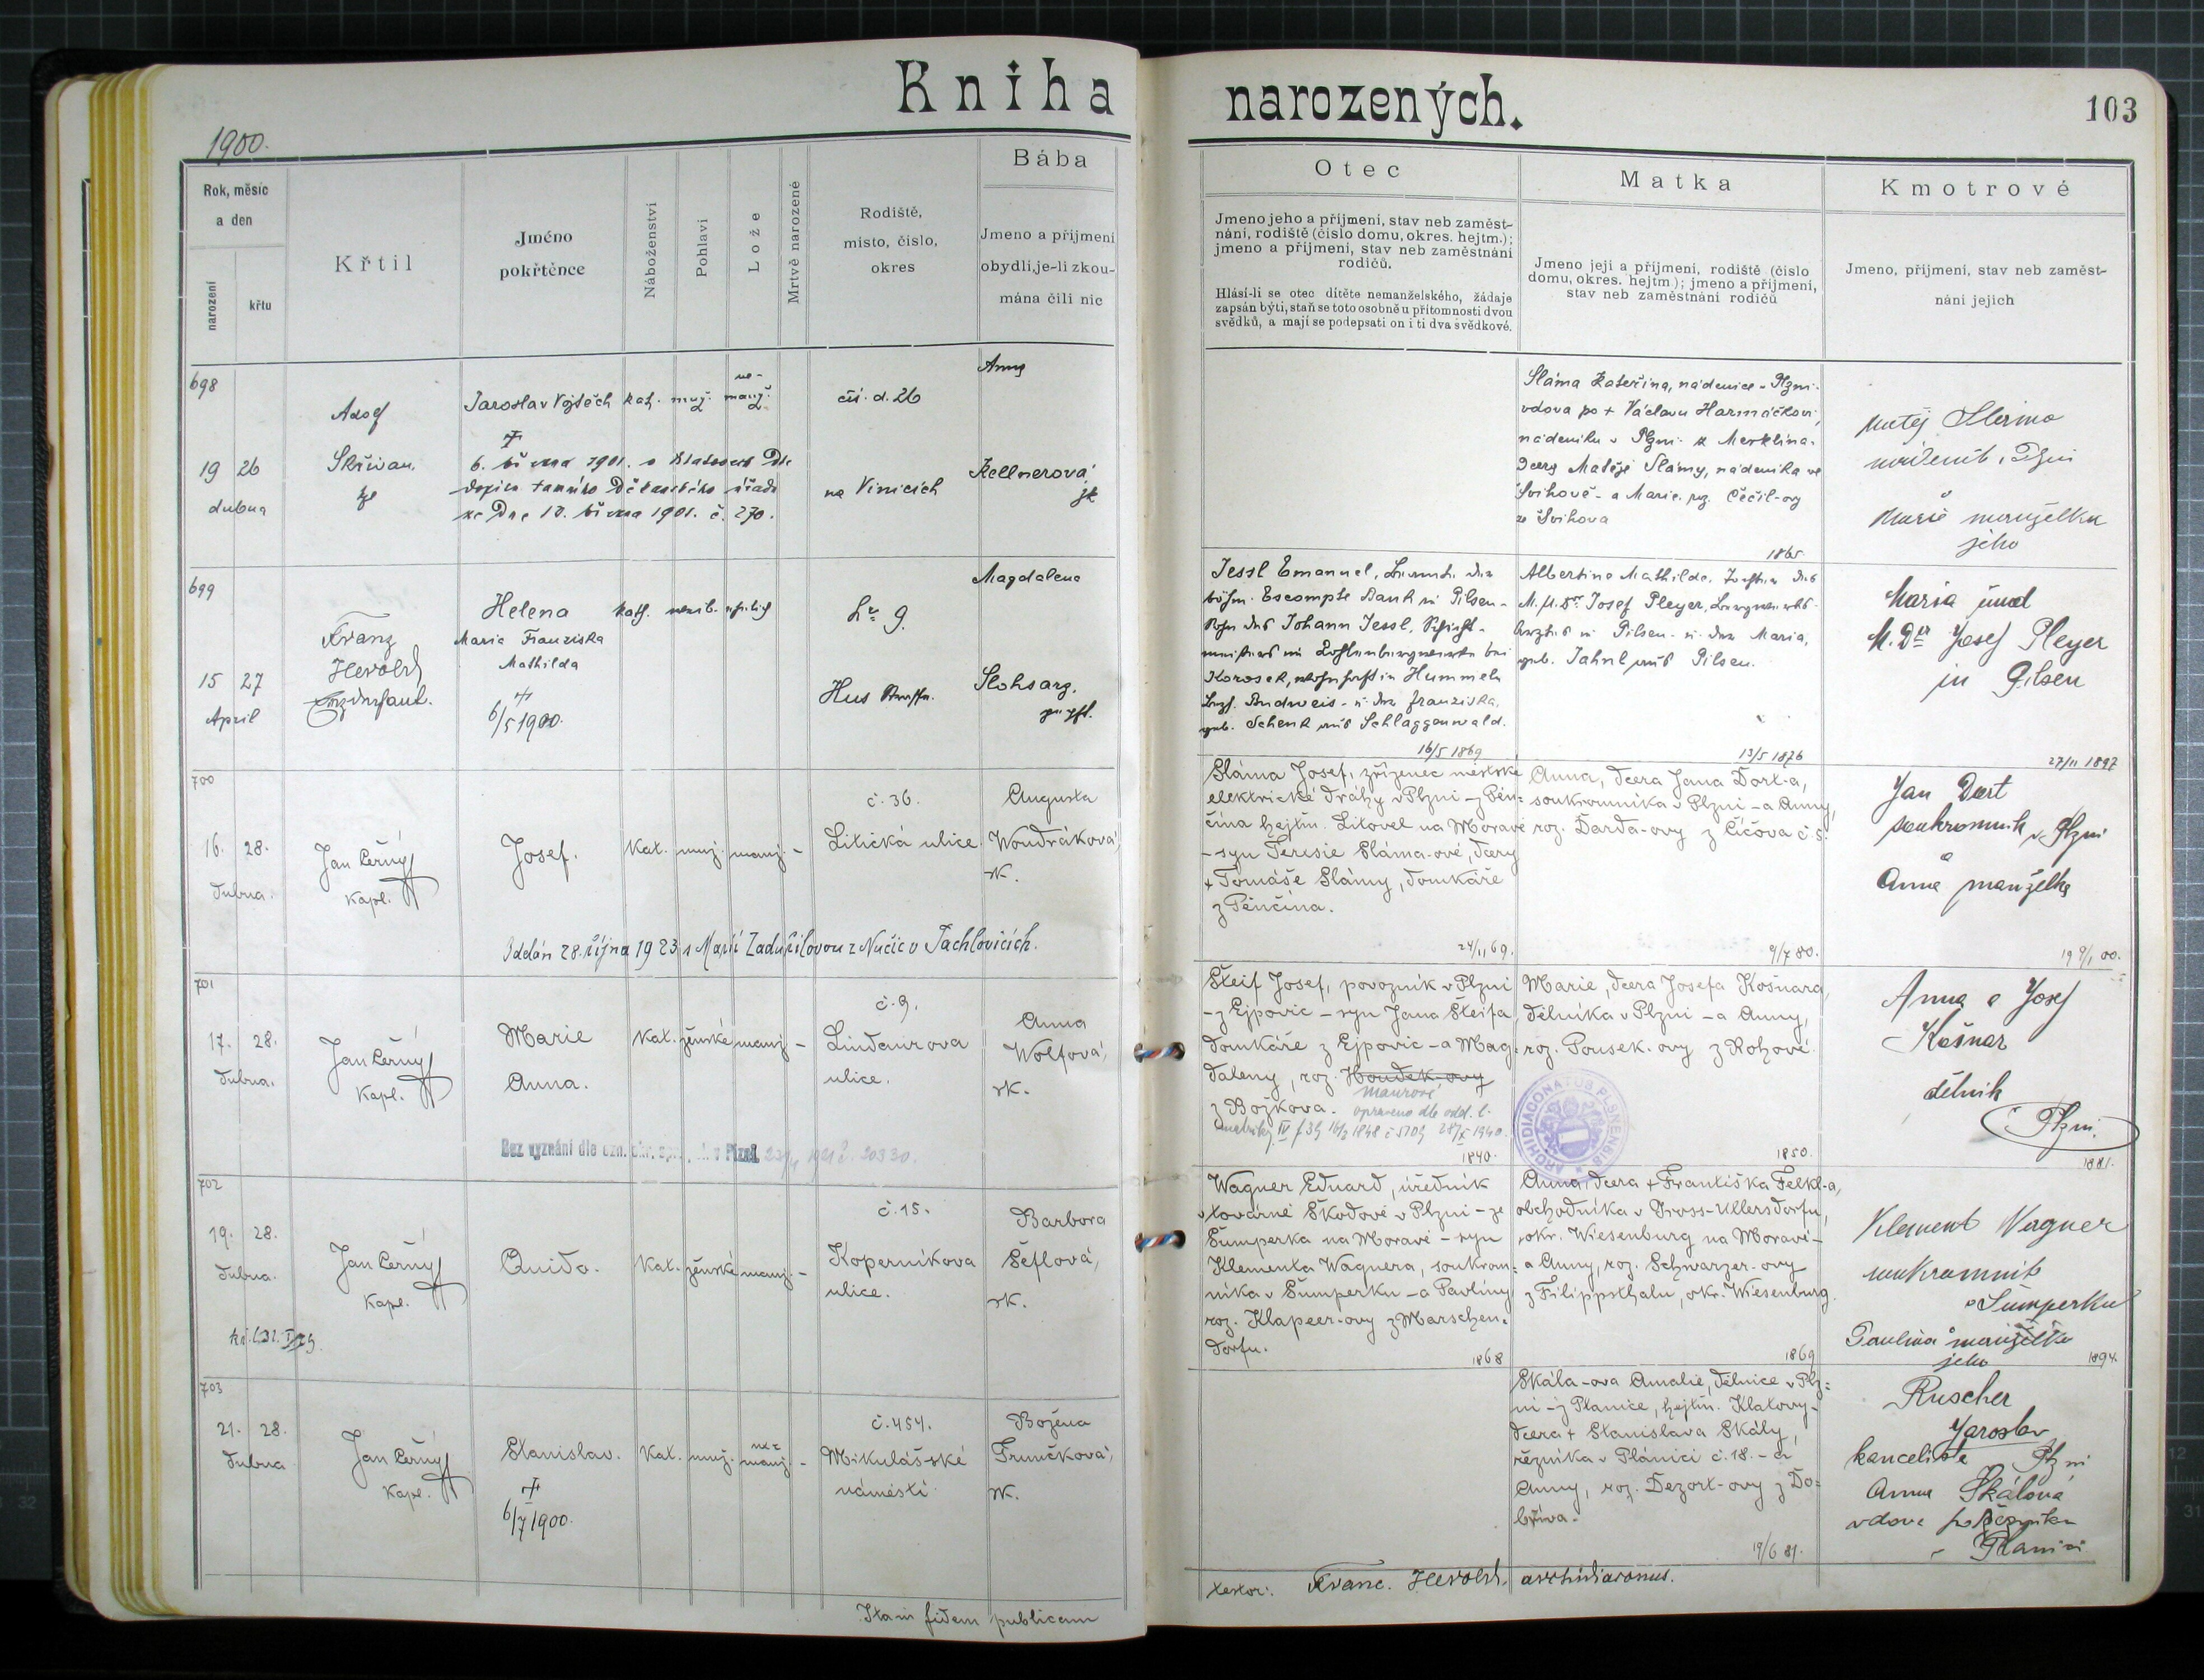 Kniha narozených.
103
1900.
Rok, měsíc
a den
narození
křtu
Křtil
Jméno
pokřtěnce
Náboženství
Pohlaví
Lože
Mrtvě narozené
Rodiště,
místo, číslo,
okres
Bába
Jmeno a příjmení
obydlí, je-li zkou-
mána čili nic
Otec
Jmeno jeho a příjmení, stav neb zaměst-
nání, rodiště (číslo domu, okres. hejtm.);
jmeno a příjmení, stav neb zaměstnání
rodičů.
Hlásí-li se otec dítěte nemanželského, žádaje
zapsán býti, staň se toto osobně u přítomnosti dvou
svědků, a mají se podepsati on i ti dva svědkové.
Matka
Jmeno její a příjmení, rodiště (číslo
domu, okres. hejtm.); jmeno a příjmení,
stav neb zaměstnání rodičů
Kmotrové
Jmeno, příjmení, stav neb zaměst-
nání jejich
698
19 26
dubna
Adolf
Skřivan
Jaroslav Vojtěch
6. března 1901.
ze dne 10. března 1901. č. 270.
kath.
muž.
ne-
manž.
čís. d. 26
na Vinicích
Anna
Kellnerová
Sláma Kateřina, nádenice v Plzni-
vdova po + Václavu Harmáčkovi,
nádeníku v Plzni - z Merklína-
dcera Matěje Slámy, nádeníka ve
Švihově - a Marie, roz. Čečil-ovy
ze Švihova
1865
Matěj
Plzni
a
Marie manželka
jeho
699
15 27
April
Franz
Herold
Helena
Maria Franziska
Mathilda
6/5 1900.
kath.
weib.
ehelich
No 9.
Hus
Magdalena
Slohsarz,
Jessl Emanuel,
böhm. Escompte Bank in Pilsen-
Sohn des Johann Jessl,
Hummeln
Budweis - u. der Franziska,
geb. Schenk aus Schlaggenwald.
16/5 1869
Albertine Mathilde, Tochter des
M.U.Dr Josef Pleyer,
Arztes in Pilsen - u. der Maria,
geb. Jahnl aus Pilsen.
13/5 1876
Maria und
M. Dr Josef Pleyer
in Pilsen
27/11 1897
700
16. 28.
dubna.
Jan Černý
Kapl.
Josef.
Kat.
muž.
manž.
-
č. 36.
Litická ulice
Augusta
Woudráková,
zk.
Oddán 28. října 1923 s Marií Zadražilovou z Nučic v Tachlovicích.
Sláma Josef, zřízenec městské
elektrické dráhy v Plzni - z Pěn=
čína hejtm. Litovel na Moravě
- syn Teresie Sláma-ové, dcery
+ Tomáše Slámy, domkáře
z Pěnčína.
24/11 69.
Anna, dcera Jana Dort-a,
soukromníka v Plzni - a Anny,
roz. Darda-ovy z Číčova č. 5.
9/7 80.
Jan Dort
soukromník v Plzni
a
Anna manželka
19 9/1 00.
701
17. 28.
dubna.
Jan Černý
Kapl.
Marie
Anna.
Kat.
ženské
manž.
-
č. 9.
Lindaurova
ulice.
Anna
Wolfová,
zk.
Bez vyznání dle ozn. okr. v Plzni 1921 č. 20330.
Šteif Josef, povozník v Plzni
- z Ejpovic - syn Jana Šteifa
domkáře z Ejpovic - a Mag=
daleny, roz. Houdek-ovy
Maurové
z Božkova. opraveno dle odd. l.
1840.
Marie, dcera Josefa Košnara,
dělníka v Plzni - a Anny,
roz. Pousek-ovy z Rohové
1850.
ARCHIDIACONATUS PLSNENSIS
Anna a Josef
Košnar
dělník
Plzni.
1881.
702
19. 28.
dubna.
Jan Černý
Kapl.
Quido.
Kat.
ženské
manž.
-
č. 15.
Koperníkova
ulice.
Barbora
Šeflová,
zk.
Wagner Eduard, úředník
v továrně Škodově v Plzni - ze
Šumperka na Moravě - syn
Klementa Wagnera, soukrom=
níka v Šumperku - a Pavlíny
roz. Klapeer-ovy z Marschen=
dorfu.
1868
Anna, dcera + Františka Felkl-a,
obchodníka v Gross-Ullersdorfu,
okr. Wiesenburg na Moravě -
a Anny, roz. Schwarzer-ovy
z Filippsthalu, okr. Wiesenburg.
1869
Klement Wagner
soukromník
v Šumperku
a
Paulina manželka
jeho
1894.
703
21. 28.
dubna
Jan Černý
Kapl.
Stanislav.
6/7 1900.
Kat.
muž.
ne=
manž.
-
č. 454.
Mikulášské
náměstí
Božena
Trunčková,
zk.
Skála-ova Amalie, dělnice v Plz=
ni - z Planice, hejtm. Klatovy-
dcera + Stanislava Skály,
řezníka v Plánici č. 18. - a
Anny, roz. Dezort-ovy z Do=
bříva.
19/6 81.
Ruscher
Jaroslav
kancelista Plzni
Anna Skálová
vdova po řezníku
v Planici
Ita in fidem publicam
testor: Franc. Herold, archidiaconus.